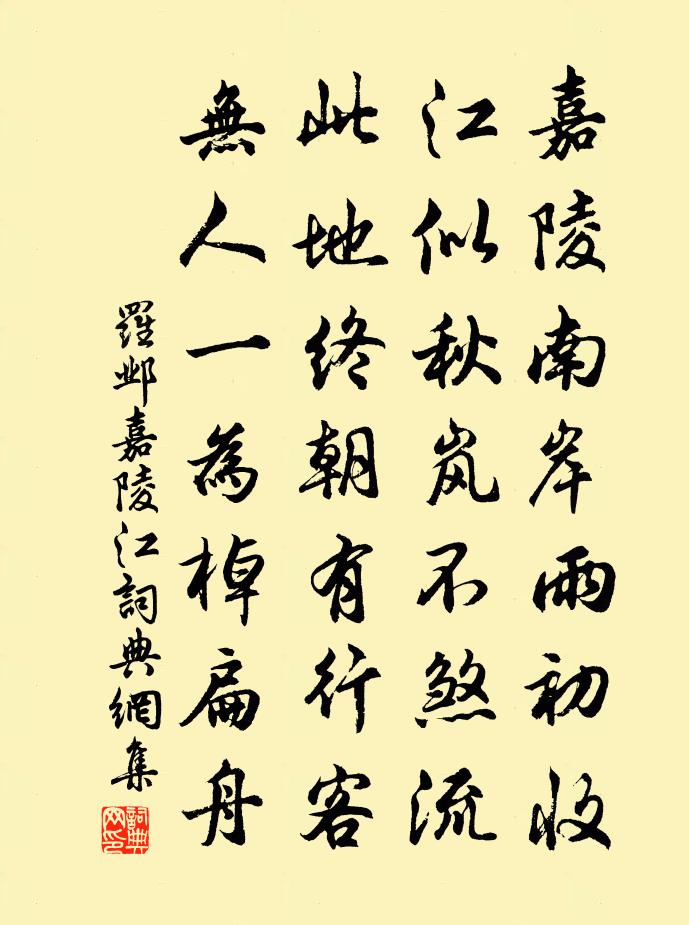 嘉陵南岸雨初收
江似秋岚不煞流
此地终朝有行客
無人一為棹扁舟
羅鄴嘉陵江詞典網集
詞典网印